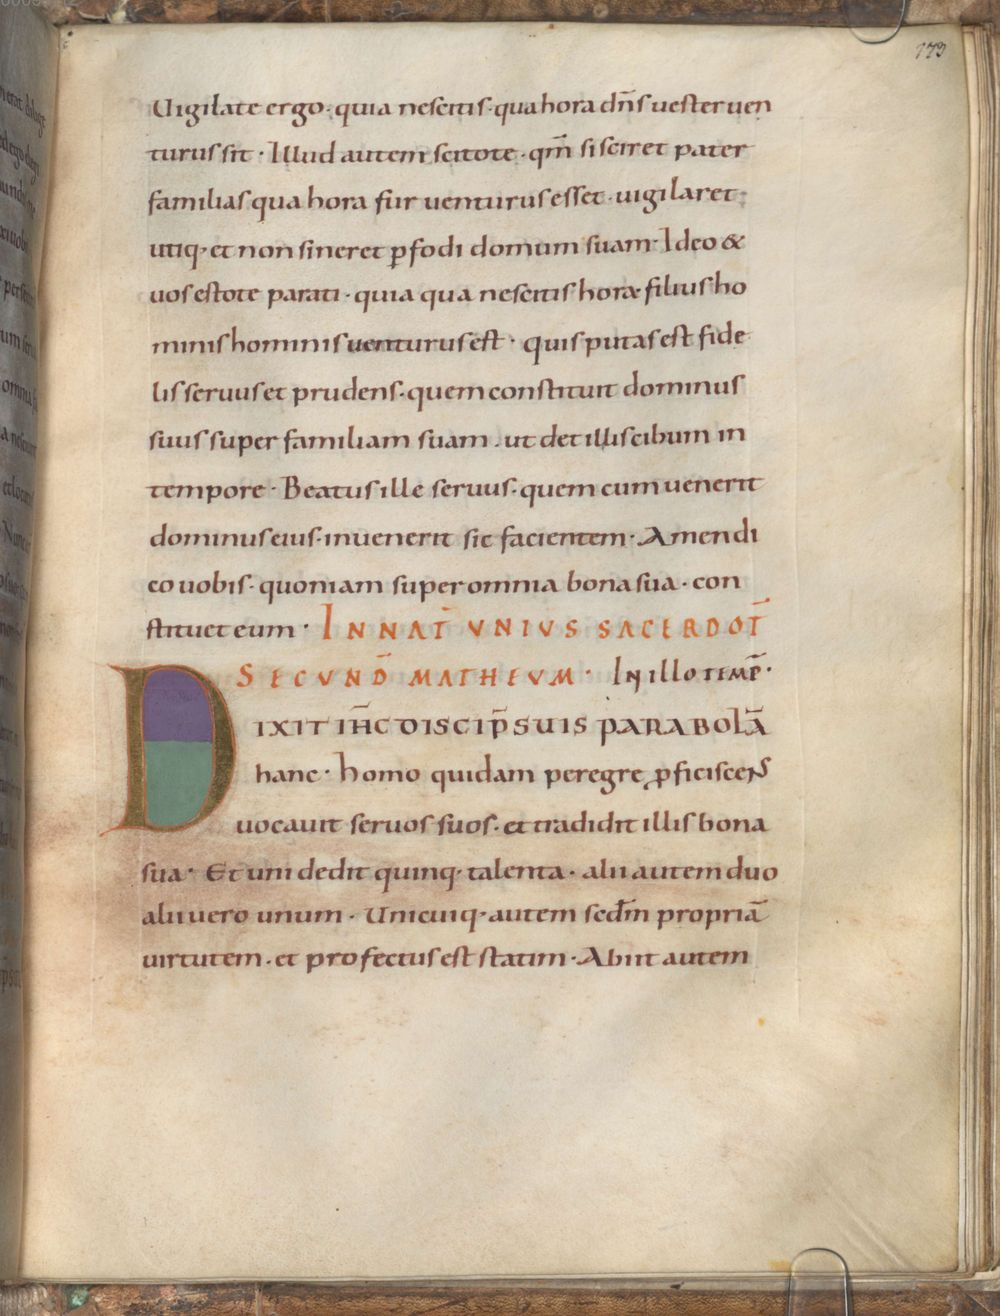 173
Uigilate ergo · quia nescitis · qua hora dn̄s uester uen
turus sit · Illud autem scitote · qm̄ si sciret pater
familias qua hora fur uenturus esset · uigilaret
utiq· et non sineret ꝑfodi domum suam · Ideo &
uos estote parati · quia qua nescitis horæ filius ho
minis hominis uenturus est · quis putas est fide
lis seruus et prudens · quem constituit dominus
suus super familiam suam · ut det illis cibum in
tempore · Beatus ille seruus · quem cum uenerit
dominus eius · inuenerit sic facientem · Amen di
co uobis · quoniam super omnia bona sua · con
stituet eum · IN NAT̄ VNIVS SACERDOT̄
SECVND̄ MATHEVM · In illo temp̄ ·
DIXIT IH̄C DISCIP̄ SUIS PARABOLĀ
hanc · homo quidam peregre ꝓficiscens
uocauit seruos suos · et tradidit illis bona
sua · Et uni dedit quinq· talenta · alii autem duo
alii uero unum · Unicuiq· autem secd̄m propriā
uirtutem · et profectus est statim · Abiit autem